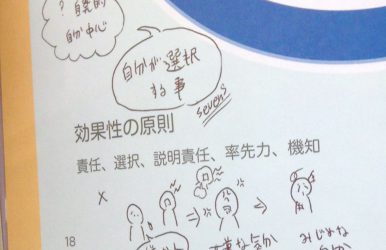 ?自発的
自分中心
自分が選択
する事
seven's
効果性の原則
責任、選択、説明責任、率先力、機知
×
18
みじめな